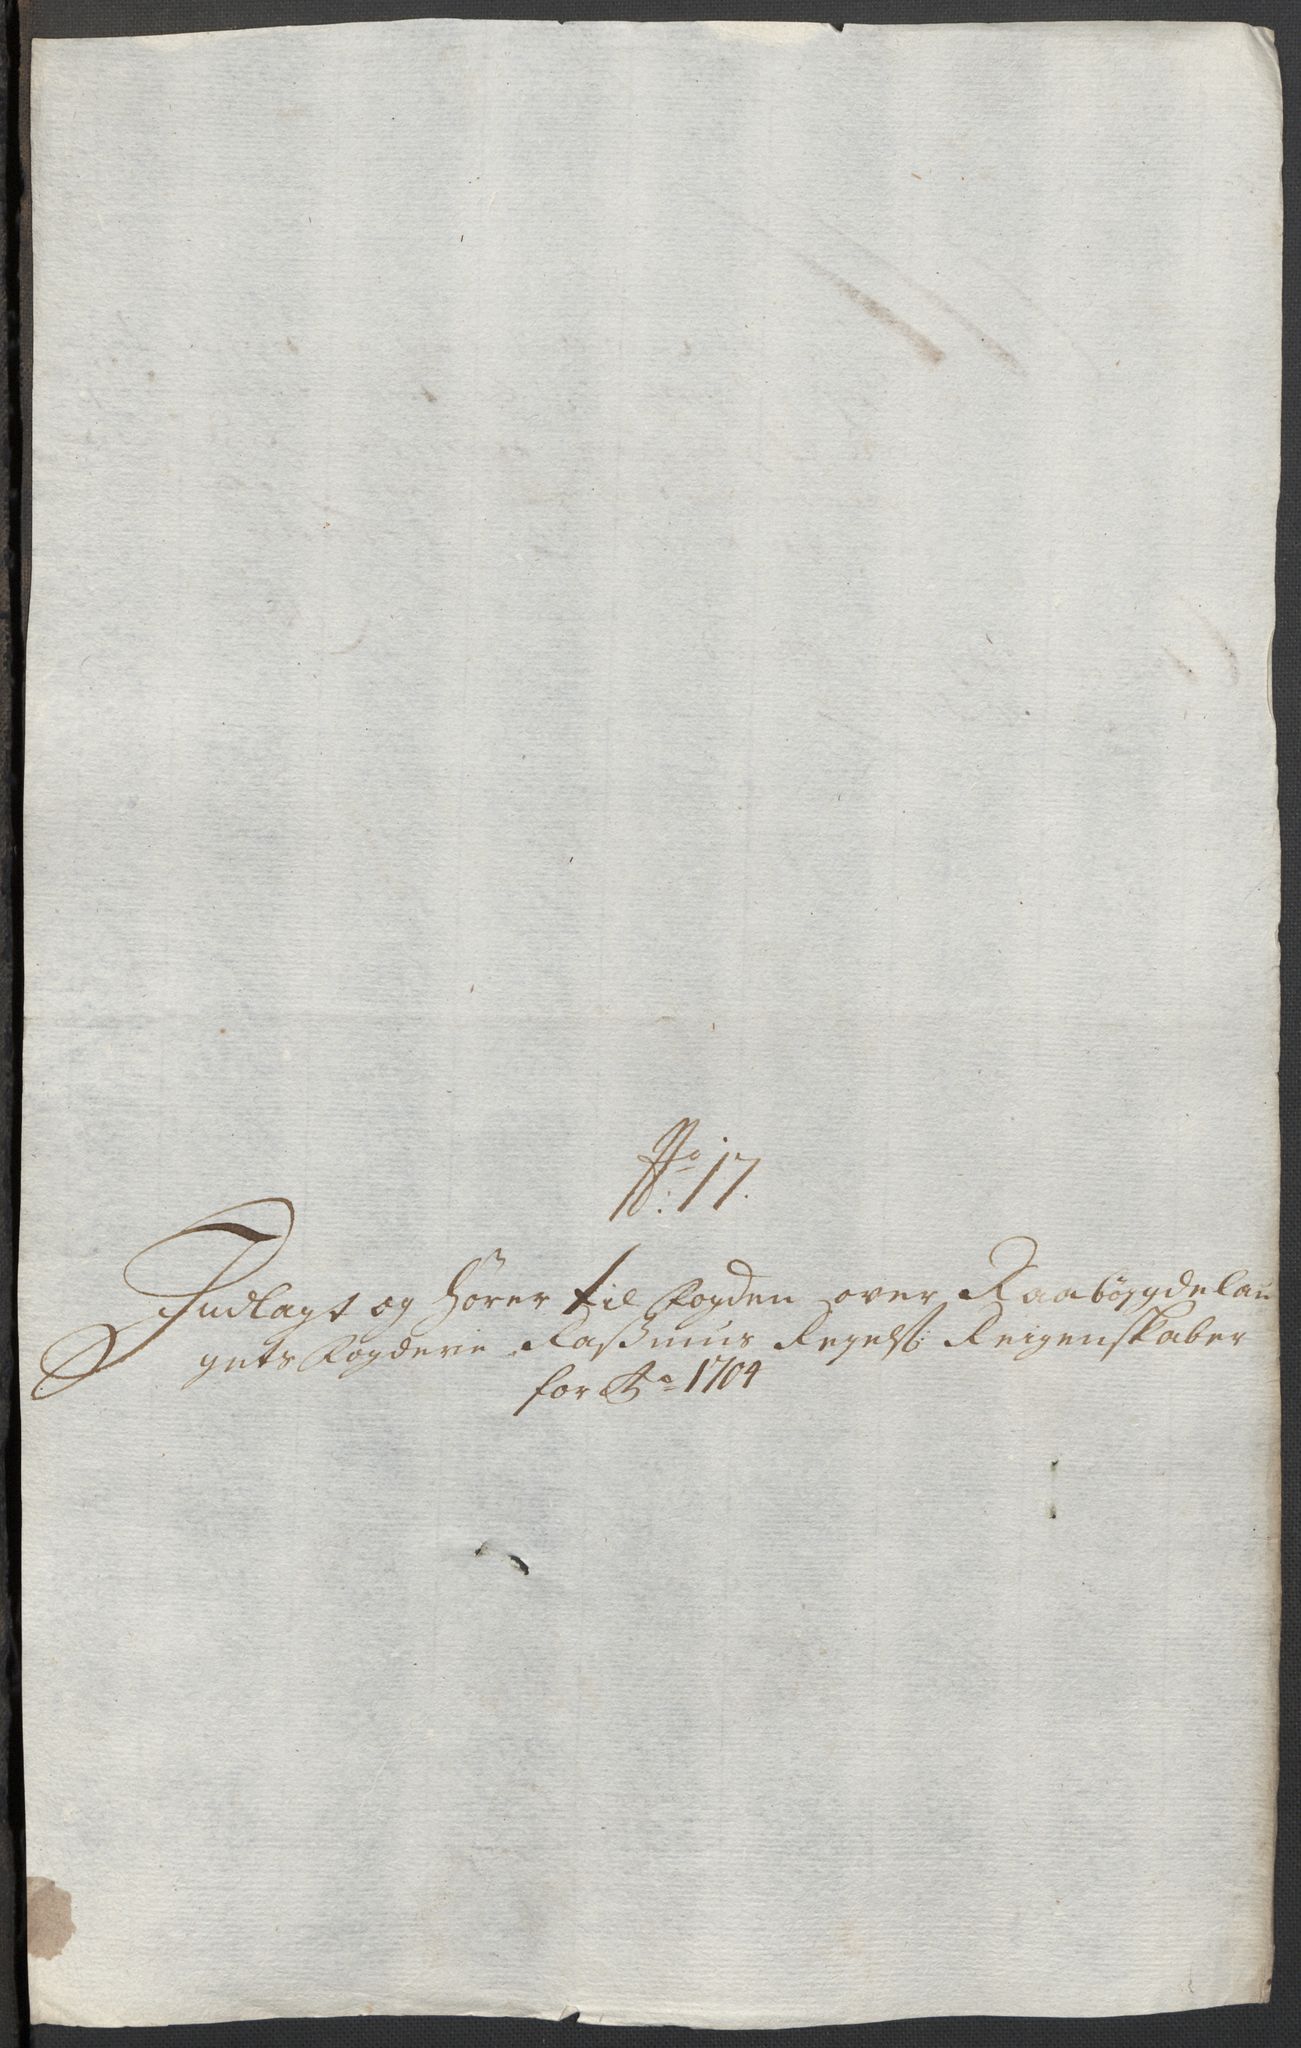 No: 17.
Indlagt og hører til fogden over Raabøygdelau
gets fogderie Rasmus Regelss: Reigenskaber
for Ao 1704